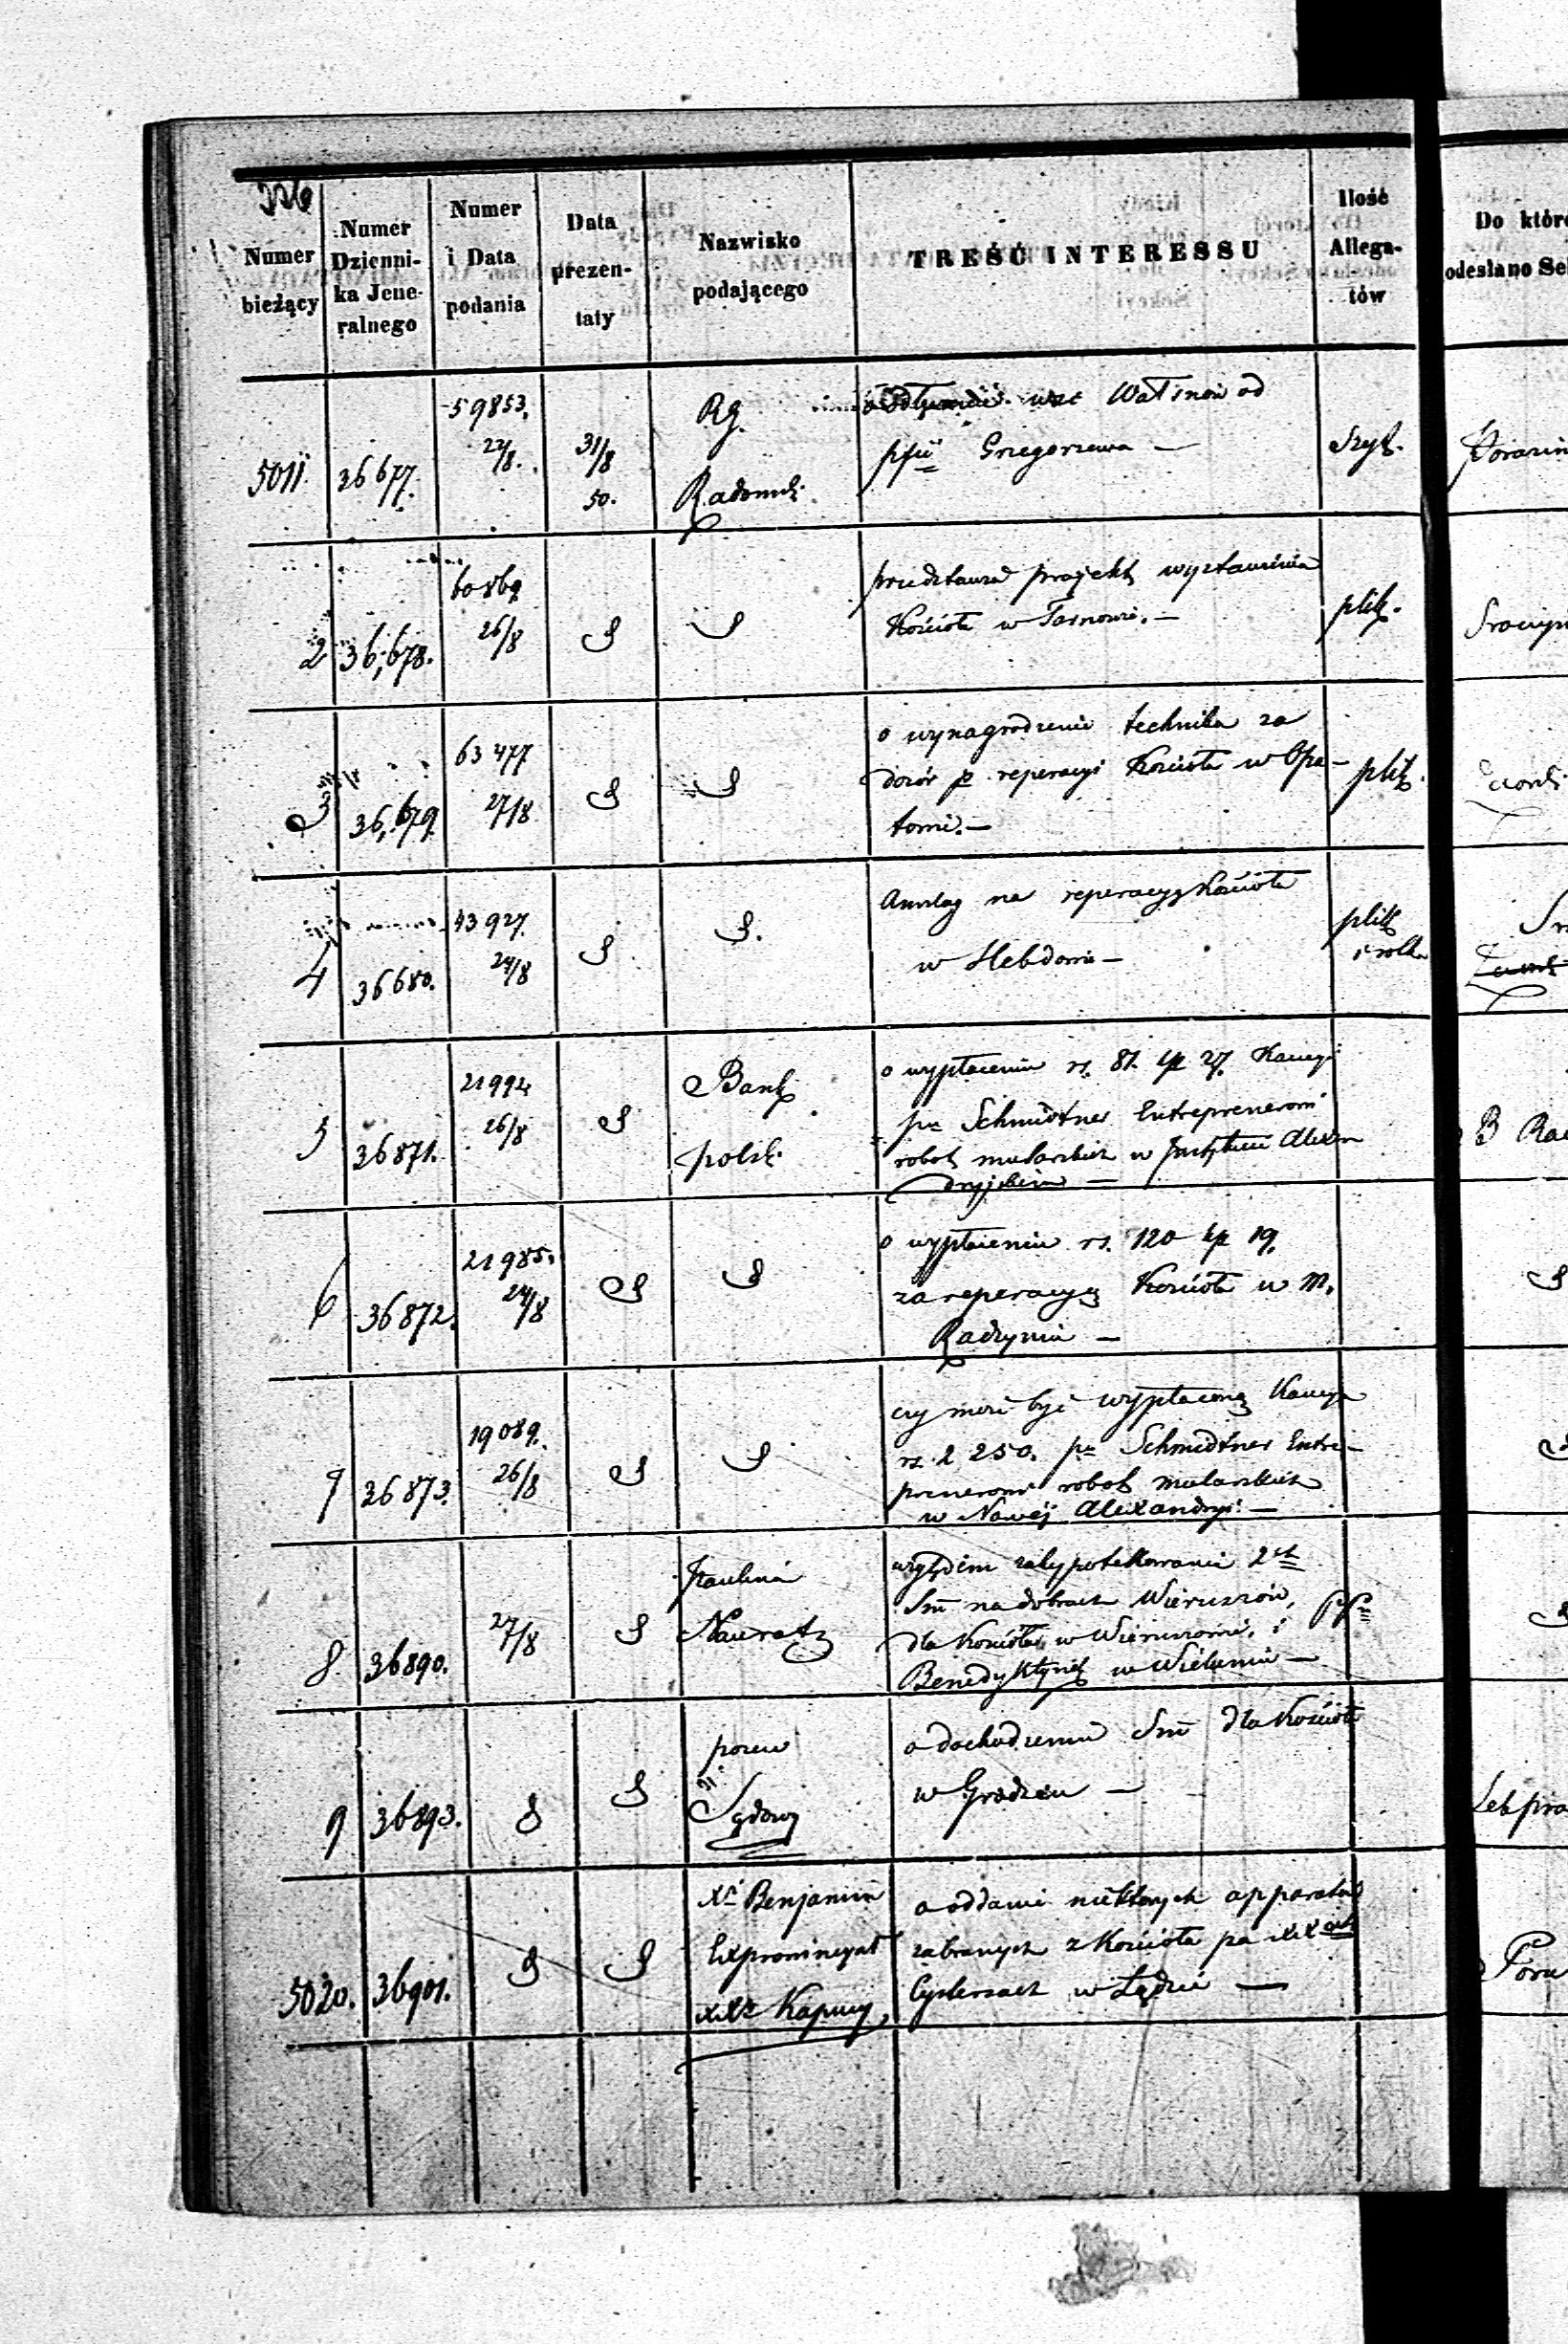 Numer bieżący
Numer Dziennika Jeneralnego
Numer i Data podania
Data prezentaty
Nazwisko podającego
TREŚĆ INTERESSU
Ilość Allegatów
Do które
odesłano Se
5011. 36677. 59853. 31/8 50. Rg.
Radomsk. od
Grzegorzewa — Szyt.
2 36,678. 60869 26/8 przedstawia projekt wystawienia
Kościoła w Tarnowie. — plik.
3 36,679. 63477 27/8 o wynagrodzenie technika za
dozór reperacyi Kościoła w Opa-
towie. — plik.
4 36680. 43927. 24/8 Anszlag na reperacyą Kościoła
w Hebdowie — plik
i rolka
5 36871. 21994 26/8 Bank
polski
o wypłacenie rs. 81. kp 27. Kaucyi
pu Schmidtner Entreprenerowi
robot malarskich w Instytucie Alexan
dryjskim —
6 36872. 21985. 24/8 o wypłacenie rs. 120 kp 19.
za reperacyą Kościoła w m.
Radzyniu —
7 36873. 19089. 26/8 czy może być wypłaconą Kaucya
rs. 2250. pu Schmidtner Entre-
prenerowi robot malarskich
w Nowéj Alexandryi. —
8 36890. 27/8 Paulina
Nawratz
względem zahypotekowania 2ch
Sm na dobrach Wieruszów,
dla Kościoła w Wieruszowie, i
Benedyktynek w Wieluniu —
9 36893. pozew
Sądowy
o dochodzeniu Sm dla Kościoła
w Grodzcu —
5020. 36901. Xs Benjamin
Exprowincyał
XXz Kapucy,
o oddanie niektórych apparatów
zabranych z Kościoła po XX
Cystersach w Lądzie —